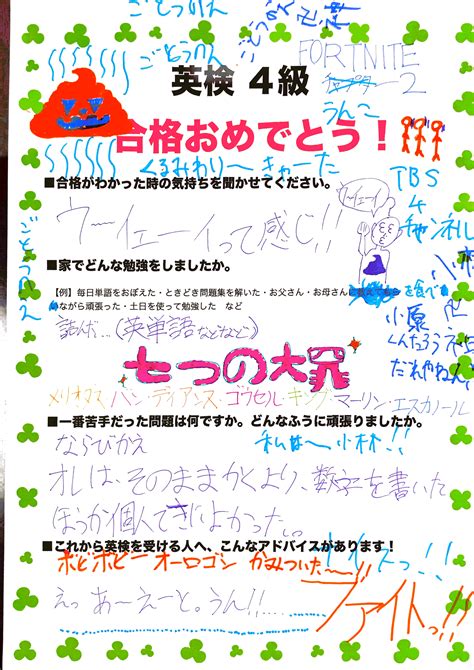 ごとうのえ
ごとうのえ
FORTNITE
チャプター2
うんこ
英検 4級
合格おめでとう！
くるみわり〜きゃーた
■合格がわかった時の気持ちを聞かせてください。
TBS
4
チャンネル
ウーイェーイって感じ!!
ウーイェーイ
■家でどんな勉強をしましたか。
【例】毎日単語をおぼえた・ときどき問題集を解いた・お父さん・お母さんに教えてもら
いながら頑張った・土日を使って勉強した など
を食べ
読んだ…(英単語などなど)
小原
くんたろう
だれやねん
七つの大罪
メリオダス バン・ディアンヌ・ゴウセル・キング・マーリン・エスカノール
■一番苦手だった問題は何ですか。どんなふうに頑張りましたか。
ならびかえ
私は〜小林!!
オレは、そのままかくより、数字を書いた
ほうが個人てきによかったっ。
■これから英検を受ける人へ、こんなアドバイスがあります！
ボビボビー オーロゴン かみついた〜
えっ あーえーと。うん!!
ファイトっ!!